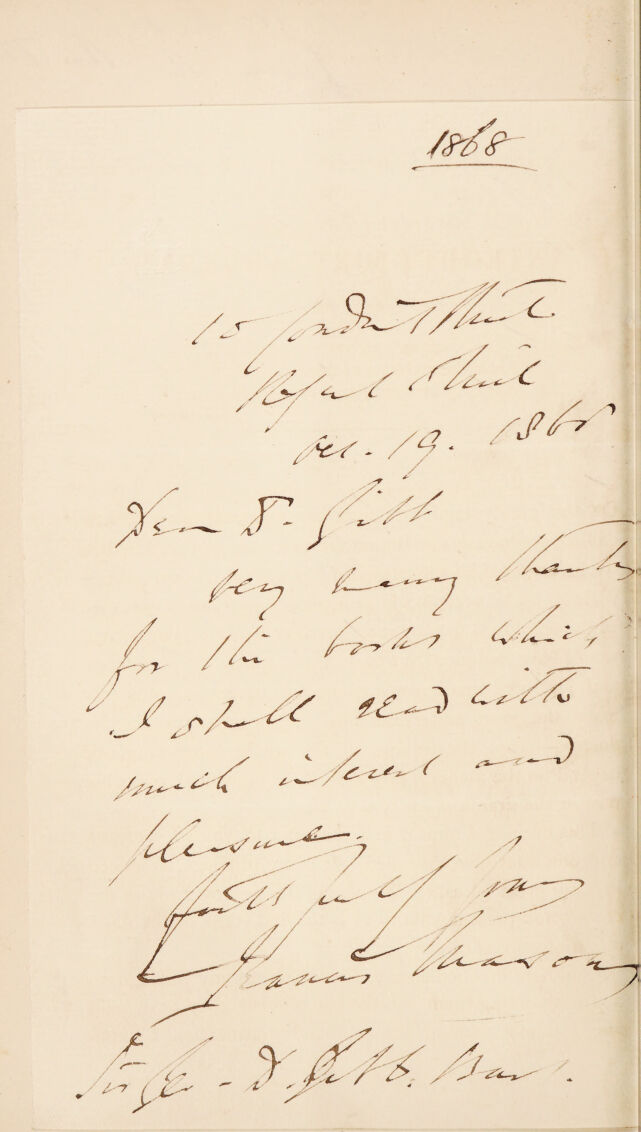 1868
10 Conduit Street
Regent Street
Oct. 19. 1868
Dear Dr. Gibb
Very many thanks
for the books which
I shall read with
much interest and
pleasure.
Faithfully yours
Francis Mason
Sir Geo. D. Gibb. Bart.